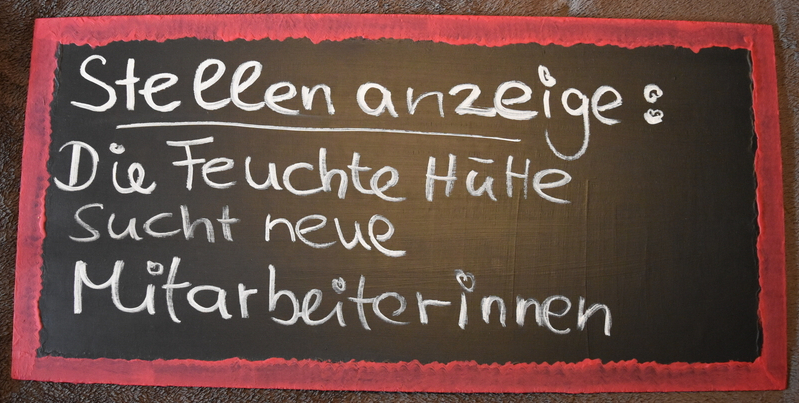 Stellenanzeige:
Die Feuchte Hütte
sucht neue
Mitarbeiterinnen